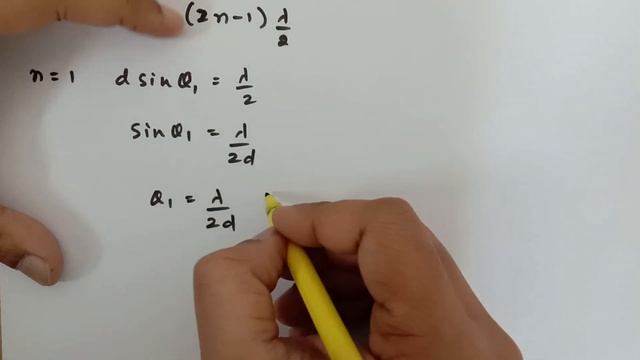 (2n-1) λ/2
n = 1 d sin θ₁ = λ/2
sin θ₁ = λ/2d
θ₁ = λ/2d